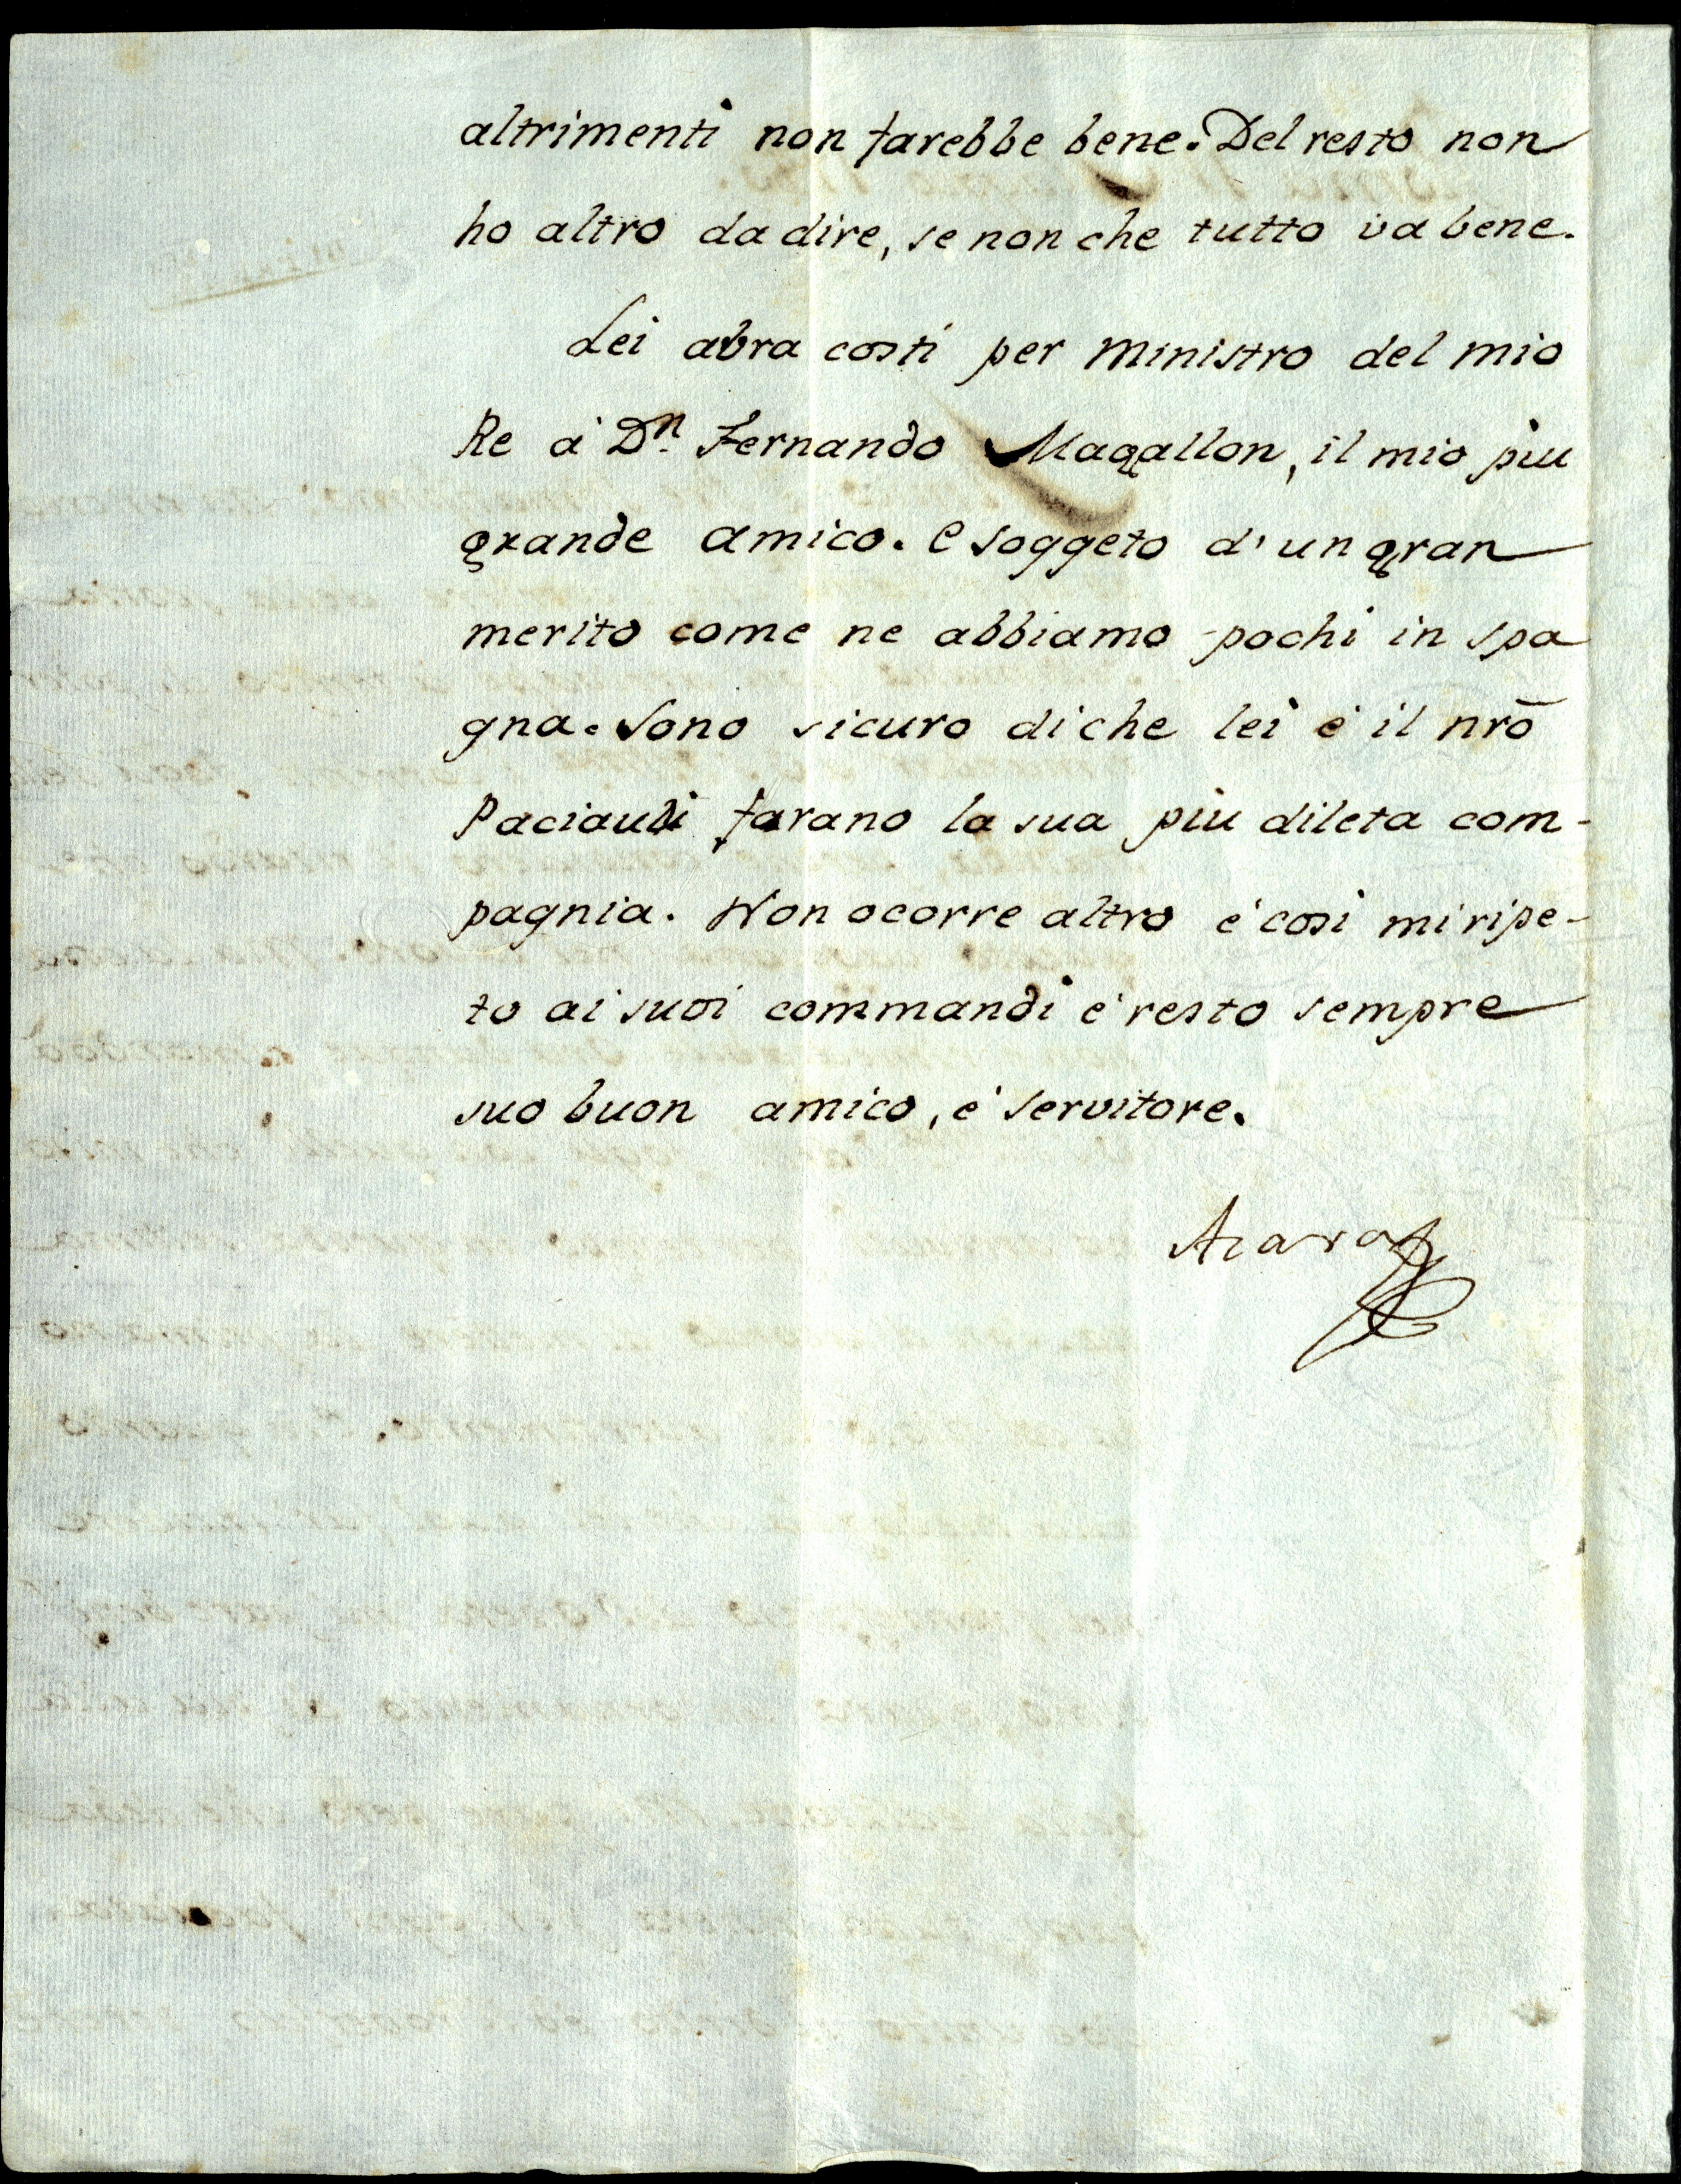 altrimenti non farebbe bene. Del resto non
ho altro da dire, se non che tutto va bene.
Lei abra costi per ministro del mio
Re à Dn. Fernando Magallon, il mio piu
grande amico. e soggeto d'un gran
merito come ne abbiamo pochi in spa
gna. Sono sicuro di che lei è il nrō
Paciaudi farano la sua piu dileta com-
pagnia. Non ocorre altro è cosi mi ripe-
to ai suoi commandi è resto sempre
suo buon amico, è servitore.
Azara